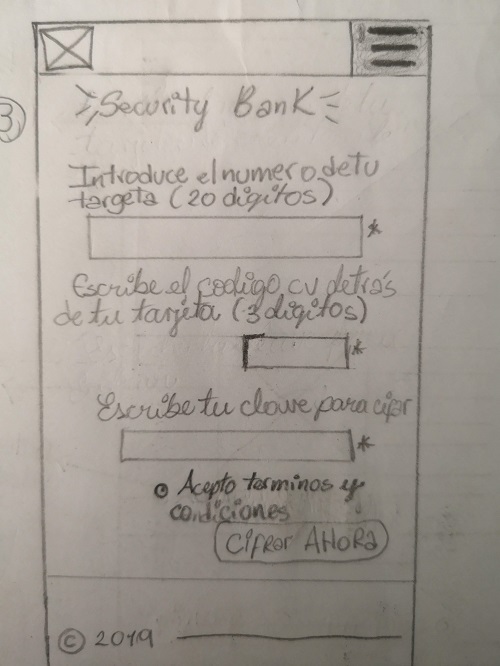 3
Security Bank
Introduce el numero de tu
targeta (20 digitos)
*
Escribe el codigo cv detrás
de tu tarjeta (3 digitos)
*
Escribe tu clave para cifar
*
Acepto terminos y
condiciones
Cifrar AHORA
© 2019